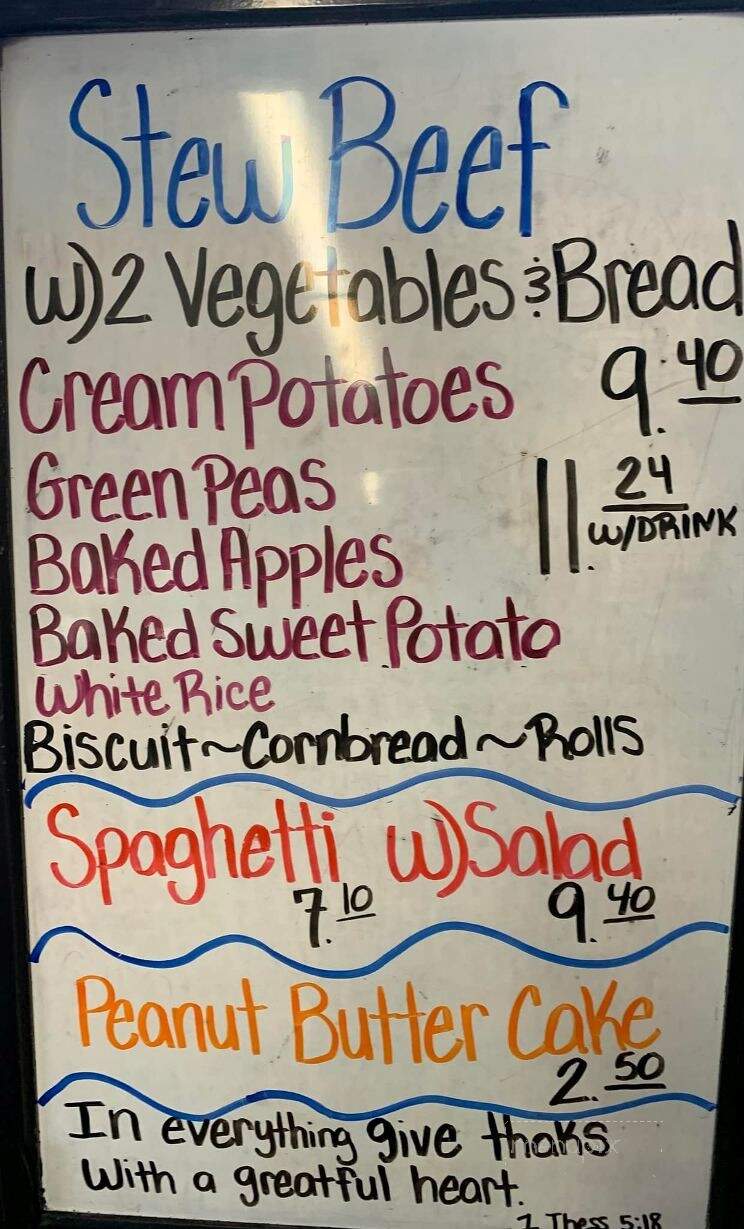 Stew Beef
w) 2 Vegetables & Bread
Cream Potatoes 9.40
Green Peas 11.24
W/DRINK
Baked Apples
Baked Sweet Potato
White Rice
Biscuit ~ Cornbread ~ Rolls
Spaghetti w) Salad
7.10 9.40
Peanut Butter Cake
2.50
In everything give thaks
With a greatful heart.
1 Thess 5:18